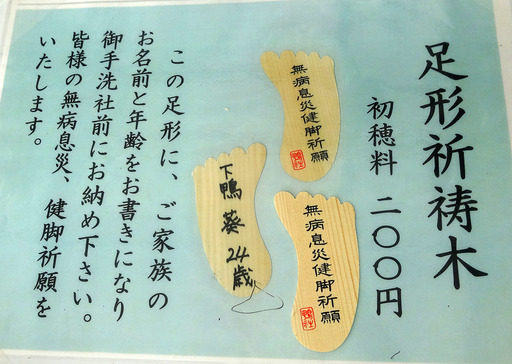 足形祈祷木
初穂料 二〇〇円
無病息災健脚祈願
無病息災健脚祈願
下鴨 葵 24歳
この足形に、ご家族の
お名前と年齢をお書きになり
御手洗社前にお納め下さい。
皆様の無病息災、健脚祈願を
いたします。